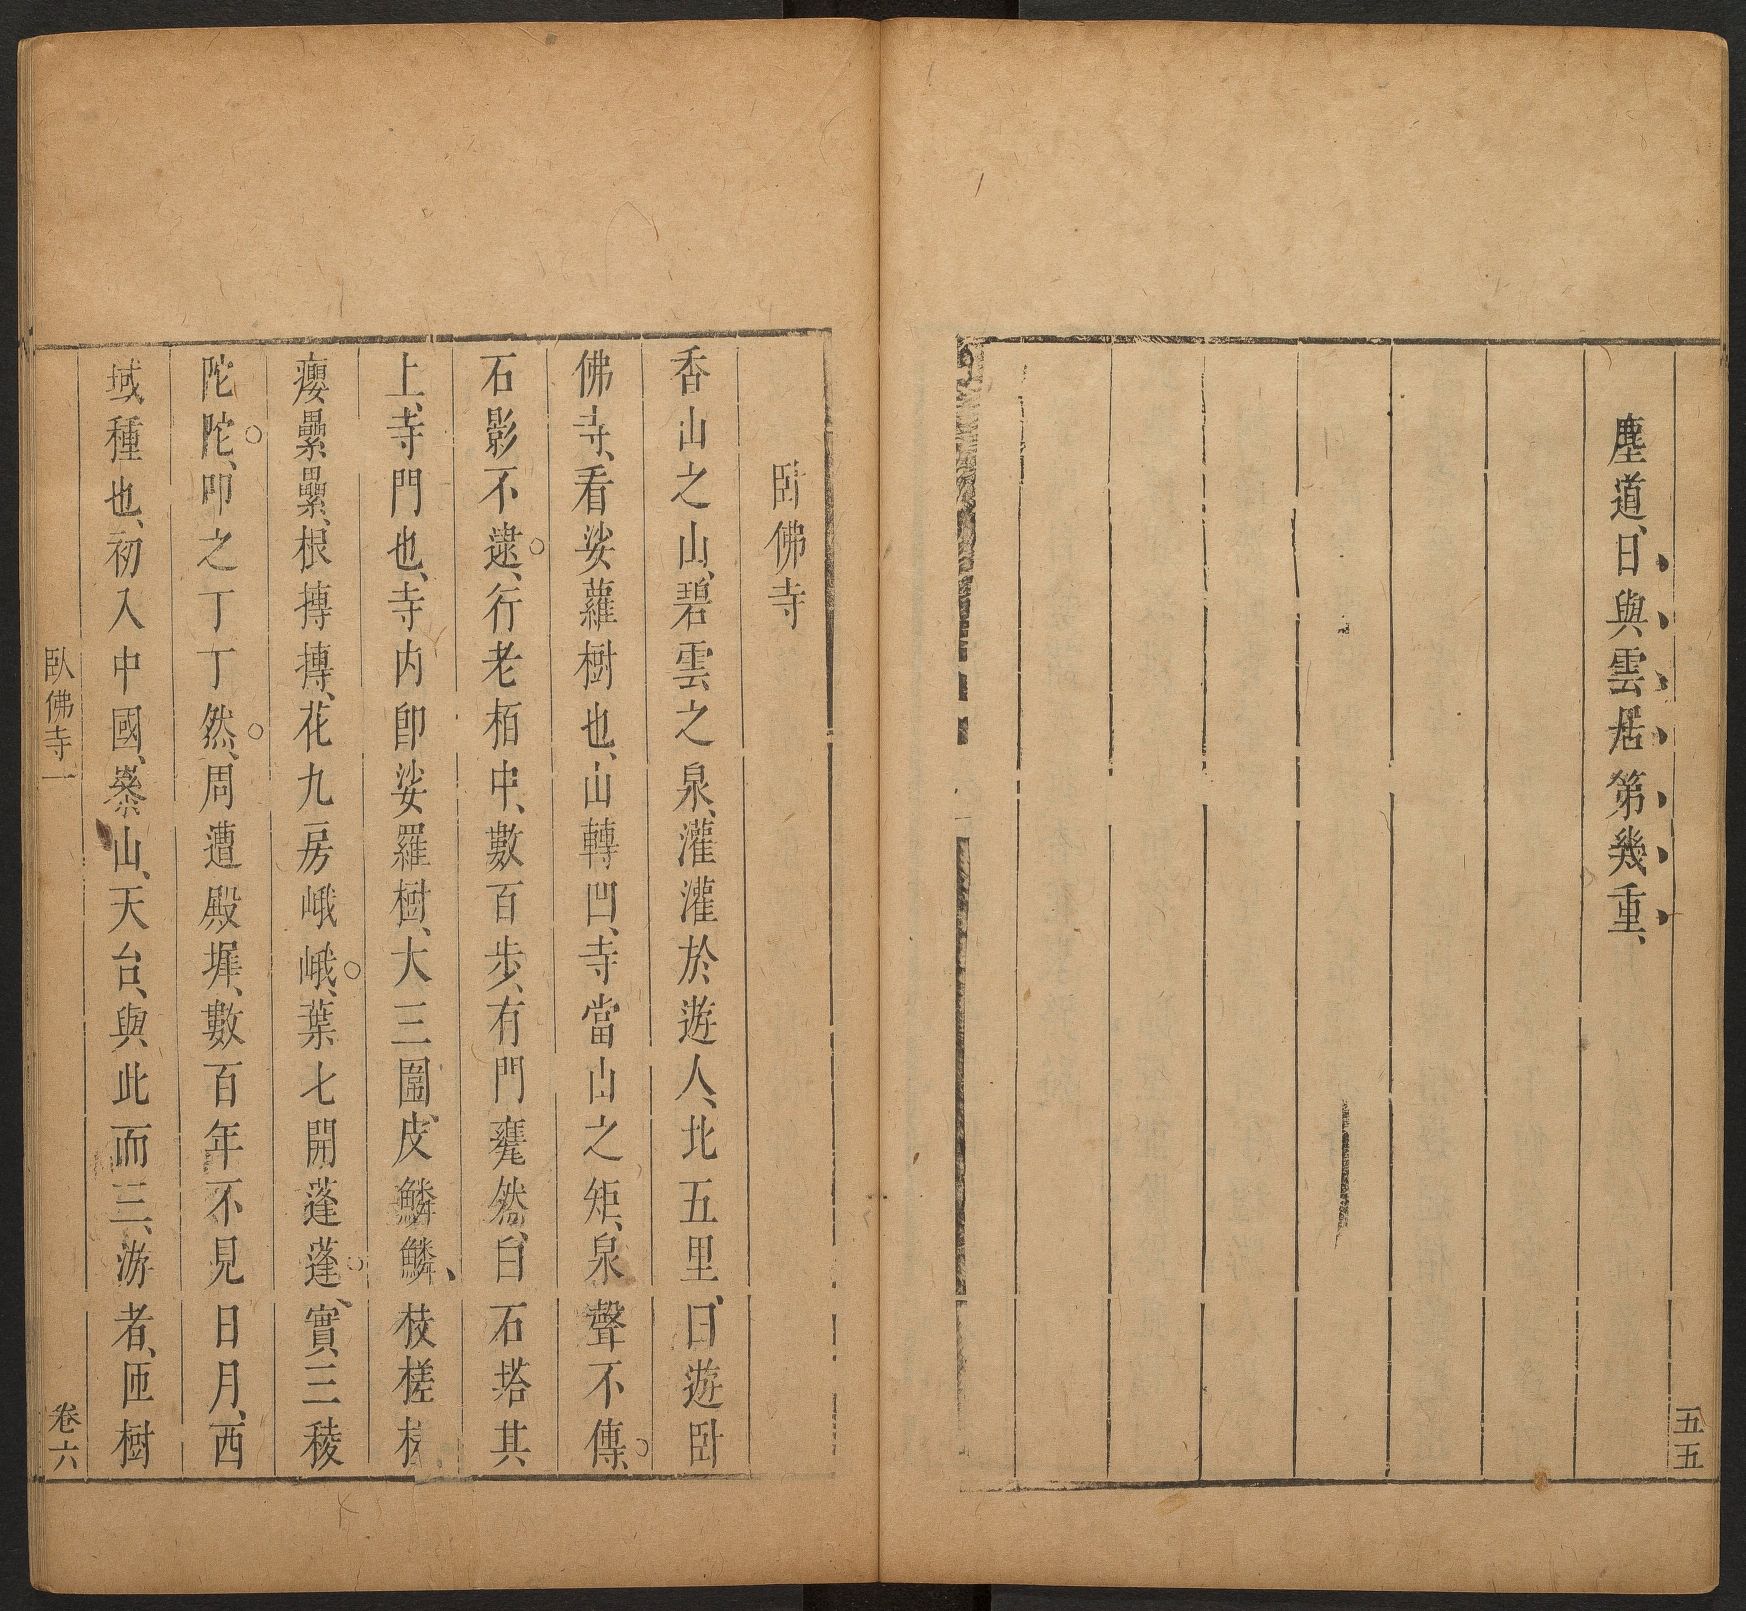 塵道、日與雲居第幾重、
五五
臥佛寺
香山之山、碧雲之泉、灌灌於遊人、北五里、曰遊臥
佛寺、看娑蘿樹也、山轉凹、寺當山之矩、泉聲不傳、
石影不逮、行老栢中、數百步、有門甕然、白石塔其
上、寺門也、寺內卽娑羅樹、大三圍、皮鱗鱗、枝槎槎
癭纍纍、根摶摶、花九房峨峨、葉七開蓬蓬、實三稜
陀陀、叩之丁丁然、周遭殿墀、數百年不見日月、西
域種也、初入中國、嵾山、天台、與此而三、游者、匝樹
臥佛寺一
卷六